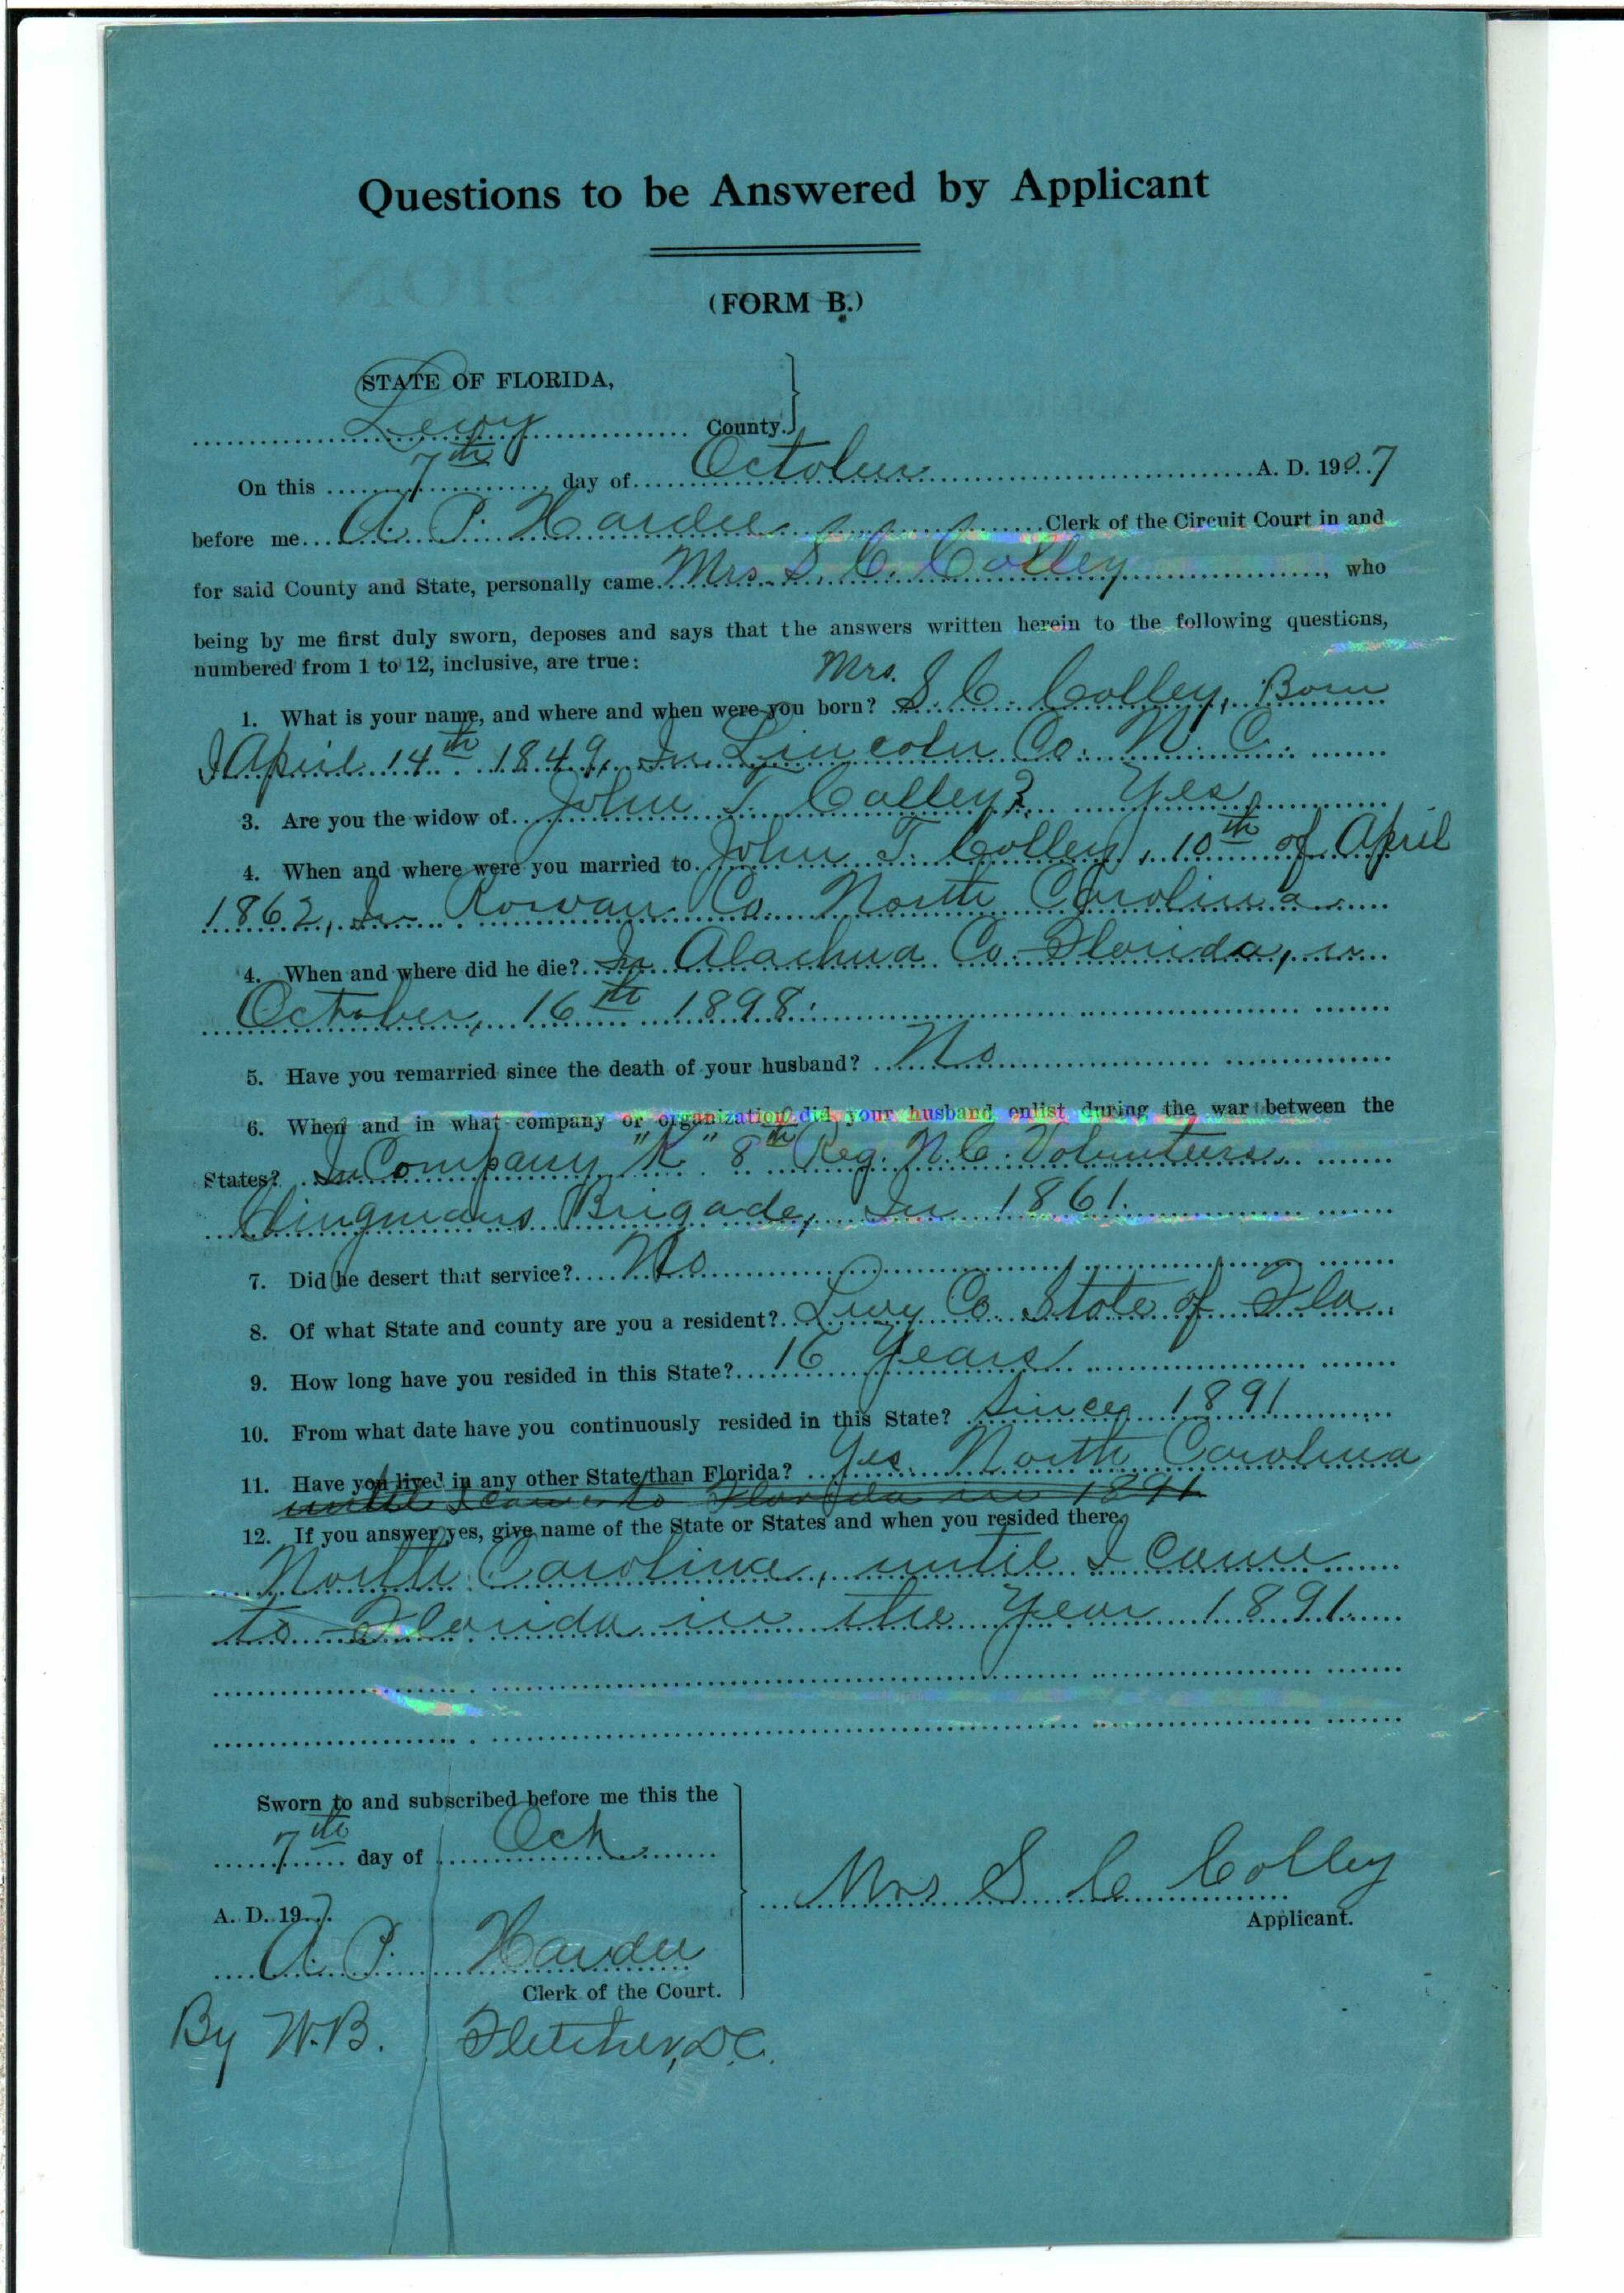 Questions to be Answered by Applicant
(FORM B.)
STATE OF FLORIDA,
Levy County.
On this 7th day of October A. D. 1907
before me A. P. Hardee Clerk of the Circuit Court in and
for said County and State, personally came Mrs. S. C. Colley, who
being by me first duly sworn, deposes and says that the answers written herein to the following questions,
numbered from 1 to 12, inclusive, are true:
1. What is your name, and where and when were you born? Mrs. S. C. Colley, Born
April 14th 1849, In Lincoln Co. N. C.
3. Are you the widow of John T. Colley? Yes
4. When and where were you married to John T. Colley, 10th of April
1862, In Rowan Co. North Carolina
4. When and where did he die? In Alachua Co. Florida,
October, 16th 1898.
5. Have you remarried since the death of your husband? No
6. When and in what company or organization did your husband enlist during the war between the
States? In Company "K" 8th Reg. N. C. Volunteers
Clingmans Brigade, In 1861.
7. Did he desert that service? No
8. Of what State and county are you a resident? Levy Co. State of Fla.
9. How long have you resided in this State? 16 Years
10. From what date have you continuously resided in this State? Since 1891
11. Have you lived in any other State than Florida? Yes. North Carolina
until I came to Florida in 1891
12. If you answer yes, give name of the State or States and when you resided there.
North Carolina, until I came
to Florida in the Year 1891.
Sworn to and subscribed before me this the
7th day of Oct.
A. D. 197
A. P. Hardee
Clerk of the Court.
By W. B. Fletcher, D.C.
Mrs S C Colley
Applicant.